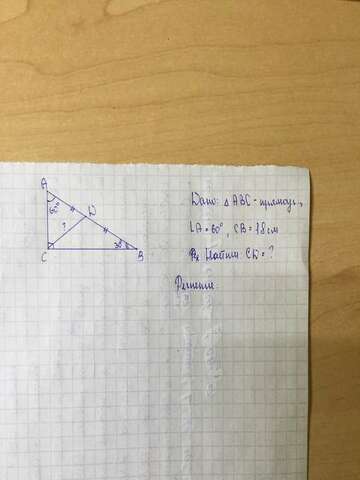 A
60°
D
?
C
30°
B
Дано: △ABC - прямоуг.,
∠A = 60°, CB = 18 см
Найти: CD = ?
Решение